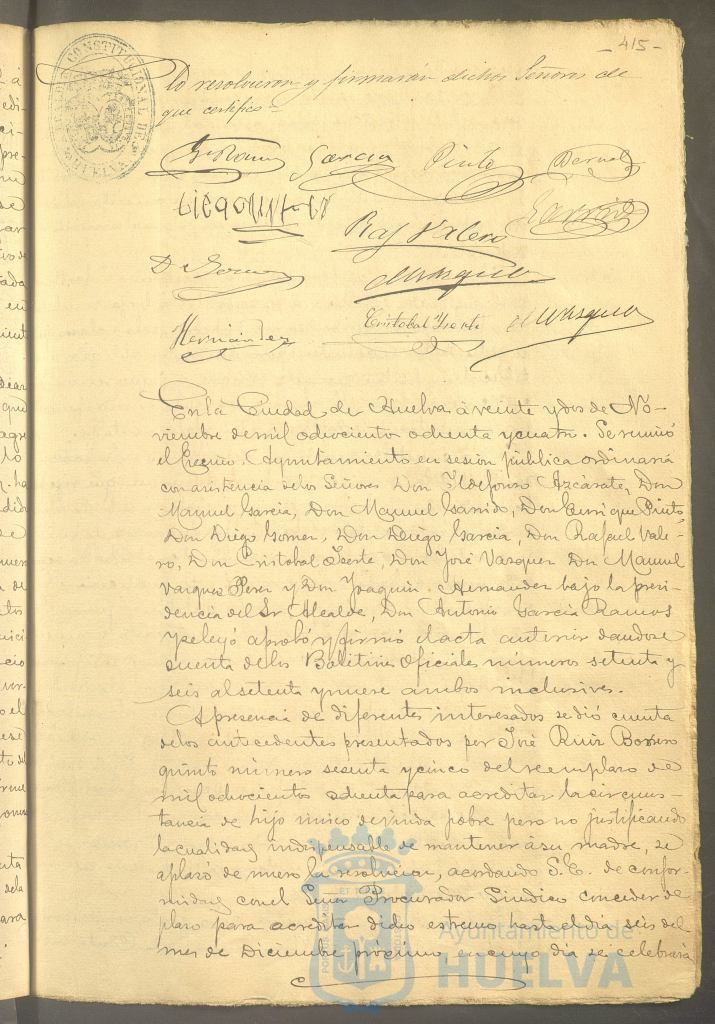 - 415 -
CONSTITUCIONAL DE
HUELVA
lo resolvieron y firmaran dichos Señores de
que certifico=
García Pinto Bernal
Raf Valero
D. Gomez
Hernandez Cristobal Ysorte M Vasquez
En la Ciudad de Huelva á veinte y dos de No-
viembre de mil ochocientos ochenta y cuatro. Se reunió
el Excmo. Ayuntamiento en sesion pública ordinaria
con asistencia de los Señores Don Ildefonso Azcárate, Don
Manuel Garcia, Don Manuel Garrido, Don Enrique Pinto,
Don Diego Gomez, Don Diego Garcia, Don Rafael Vale-
ro, Don Cristobal Ysorte, Don José Vazquez Don Manuel
Vazquez Perez y Don Joaquin Hernandez bajo la presi-
dencia del Sr Alcalde, Don Antonio Garcia Ramos
y se leyó aprobó y firmó el acta anterior dandose
cuenta de los Boletines Oficiales números setenta y
seis al setenta y nueve ambos inclusives.
A presencia de diferentes interesados se dió cuenta
de los antecedentes presentados por José Ruiz Borrero
quinto número sesenta y cinco del reemplazo de
mil ochocientos ochenta para acreditar la circuns-
tancia de hijo unico de viuda pobre pero no justificando
la cualidad indispensable de mantener á su madre, se
aplazó de nuevo la resolucion, acordando S.E. de confor-
midad con el Señor Procurador Sindico conceder de
plazo para acreditar dicho estremo hasta el dia seis del
mes de Diciembre proximo en cuyo dia se celebrará
Ayuntamiento de
HUELVA